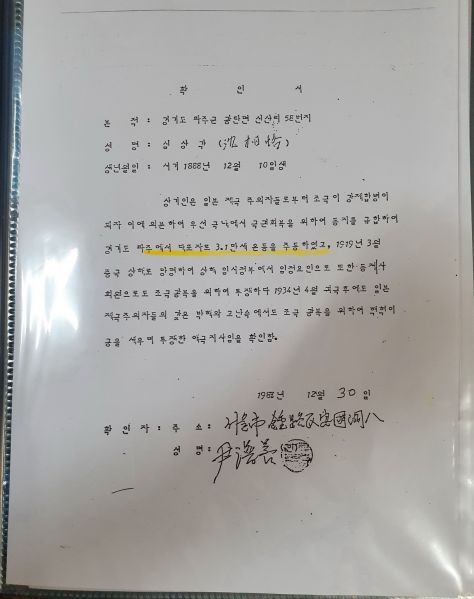 확 인 서
본 적 : 경기도 파주군 광탄면 신산리 58번지
성 명 : 심상각 (沈相
생년월일 : 서기 1888년 12월 10일생
상기인은 일본 제국 주의자들로부터 조국이 강제합병이
되자 이에 의분하여 우선 국내에서 국권회복을 위하여 동지를 규합하여
경기도 파주에서 3.1만세 운동을 주동하였고, 1919년 3월
중국 상해로 망명하여 상해 임시정부에서 임정요원으로 또한
회원으로도 조국광복을 위하여 투쟁하다 1934년 4월 귀국후에도 일본
제국주의자들의 갖은 박해와 고난속에서도 조국 광복을 위하여 혁혁한
공을 세우며 투쟁한 애국지사임을 확인함.
1988년 12월 30일
확 인 자 : 주 소 : 市 鍾路區安國洞八
성 명 : 尹潽善